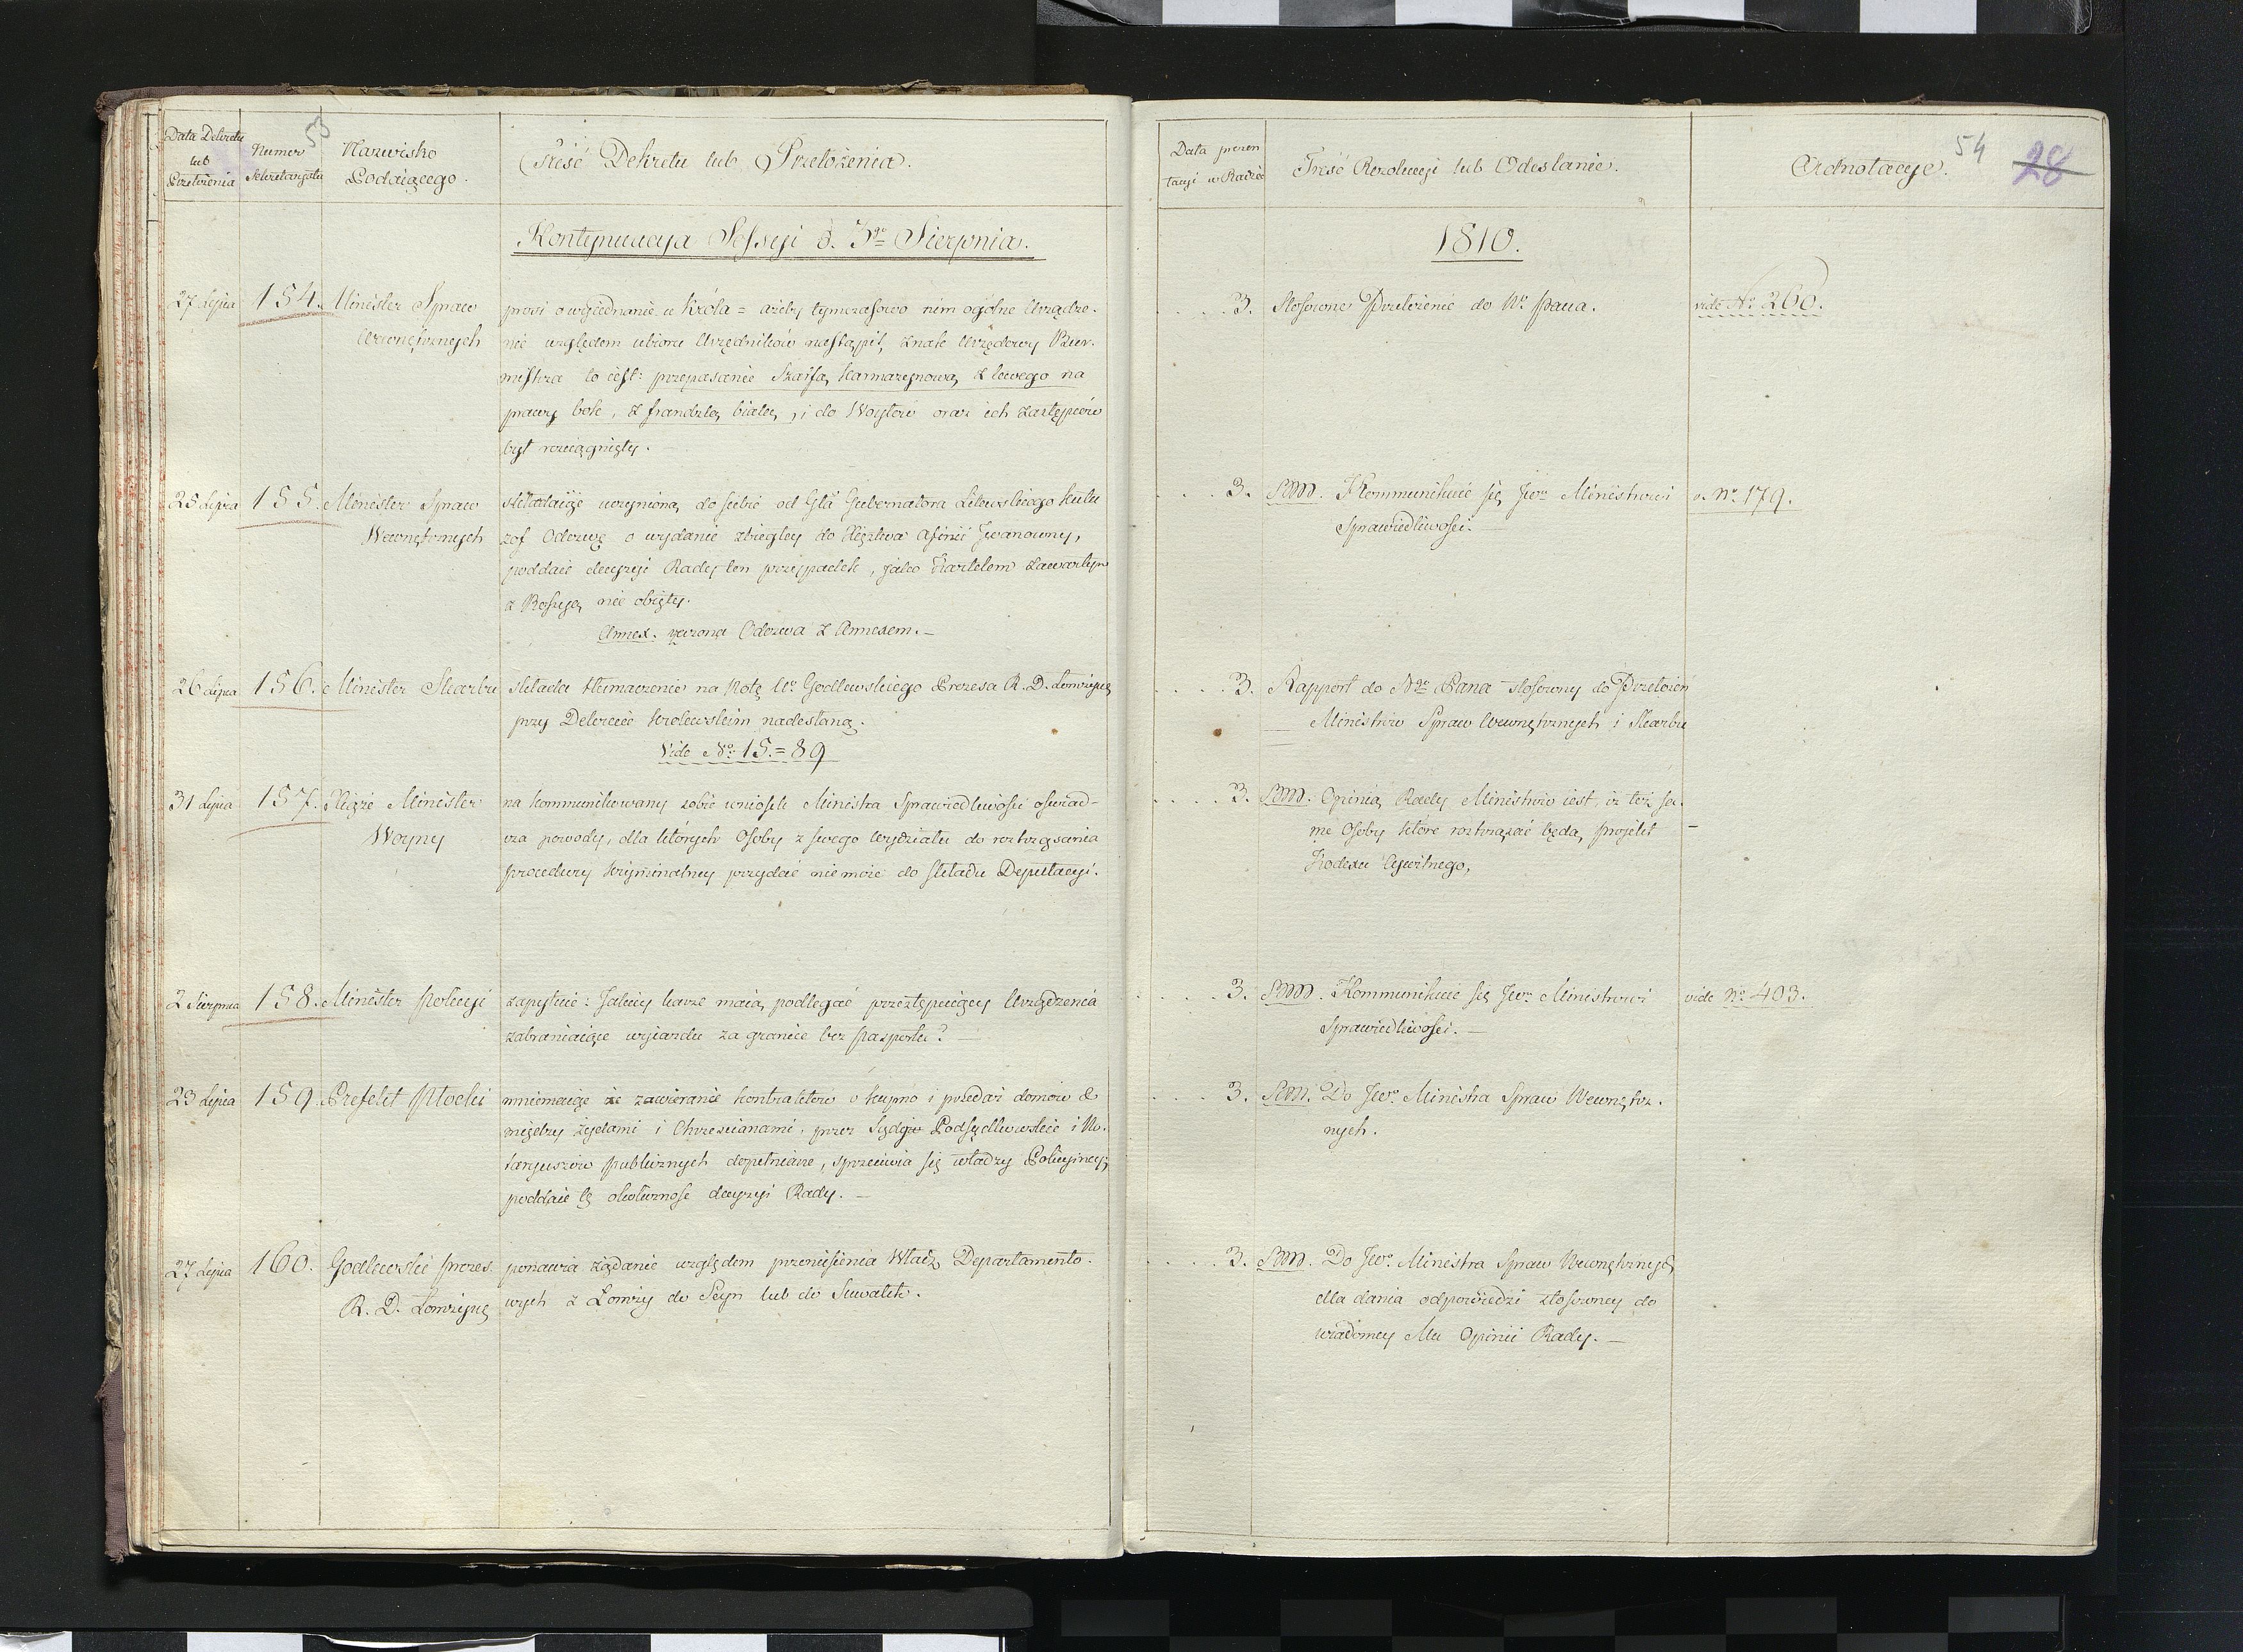 53
Data Dekretu
lub
Przełożenia
Numer
Sekretaryatu
Nazwisko
Podaiącego.
Treść Dekretu lub Przełożenia.
Kontynuacya Sessyi d. 3go Sierpnia.
27 Lipca
154.
Minister Spraw
Wewnętrznych
prosi o wyjednanie u Króla = ażeby tymczasowo nim ogólne Urządze-
nie względem ubioru Urzędników nastąpi, znak Urzędowy Bur-
mistrza to iest: przepasanie szarfą karmazynową z lewego na
prawy bok, z frandzlą białą, i do Woytów oraz ich zastępców
był rozciągnięty.
25 Lipca
155.
Minister Spraw
Wewnętrznych
składaiąc uczynioną do siebie od Gła Gubernatora Litewskiego Kutu
zof Odezwę o wydanie zbiegłey do Xięstwa Afinii Jwanowny,
poddaie decyzyi Rady ten przypadek, jako Kartelem zawartym
z Rossyą nie obięty.
Annex. rzeczona Odezwa z Annexem. —
26 Lipca
156.
Minister Skarbu
składa tłumaczenie na Notę Wo Godlewskiego Prezesa R. D. Łomżyńs
przy Dekrecie Krolewskim nadesłaną.
Vide No 15. = 89
31 Lipca
157.
Xiąże Minister
Woyny
na kommunikowany sobie wniosek Ministra Sprawiedliwości oświad-
cza powody, dla których Osoby z swego Wydziału do roztrząsania
procedury kryminalney przydać nie może do składu Deputacyi.
2 Sierpnia
158.
Minister Policyi
zapytuie: Jakiey karze maią podlegać przestępuiący Urządzenia
zabraniaiące wyiazdu za granice bez paszportu? —
23 Lipca
159.
Prefekt Płocki
mniemaiąc że zawieranie kontraktów o kupno i przedaż domów &
między żydami i Chrześcianami, przez Sądy Podsędkowskie i No-
taryuszów publicznych dopełniane, sprzeciwia się władzy Policyiney;
poddaie tę okoliczność decyzyi Rady. —
27 Lipca
160.
Godlewski prezes
R. D. Łomżyńs
ponawia żądanie względem przeniesienia Władz Departamento-
wych z Łomży do Seyn lub do Suwałk.
54
28
Data prezen
tacyi w Radzie
Treść Rezolucyi lub Odesłanie.
Adnotacye.
1810.
3.
Stosowne Przełożenie do No Pana.
vide No 260.
3.
SWW. Kommunikuie się Jwo Ministrowi
Sprawiedliwości. —
v. No 179.
3.
Rapport do Ngo Pana stosowny do Przełożeń
Ministrów Spraw Wewnętrznych i Skarbu
3.
SWW. Opinią Rady Ministrów iest, iż też sa-
me Osoby które roztrząsać będą projekt
Kodexu Cywilnego,
3.
SWW. Kommunikuie się Jwo Ministrowi
Sprawiedliwości. —
vide No 403.
3.
SWW. Do Jwo Ministra Spraw Wewnętrz-
nych.
3.
SWW. Do Jwo Ministra Spraw Wewnętrznych
dla dania odpowiedzi stosowney do
wiadomey Mu Opinii Rady. —